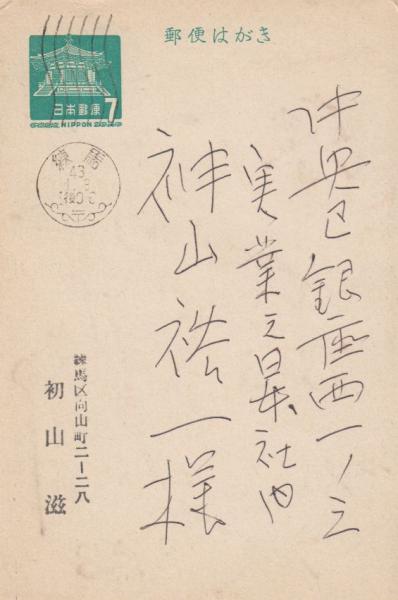 郵便はがき
日本郵便 7
NIPPON
練馬
43
中央区銀座西一ノ三
実業之日本社内
神山裕一様
練馬区向山町二ー二八
初山滋